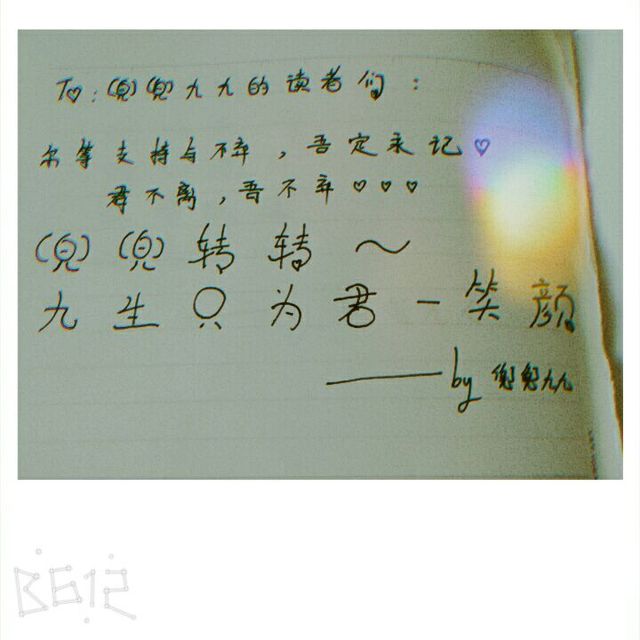 To:兜兜九九的读者们:
尔等支持与不弃,吾定永记♡
君不离,吾不弃♡♡♡
兜兜转转~
九生只为君一笑颜
——by 兜兜九九
B612